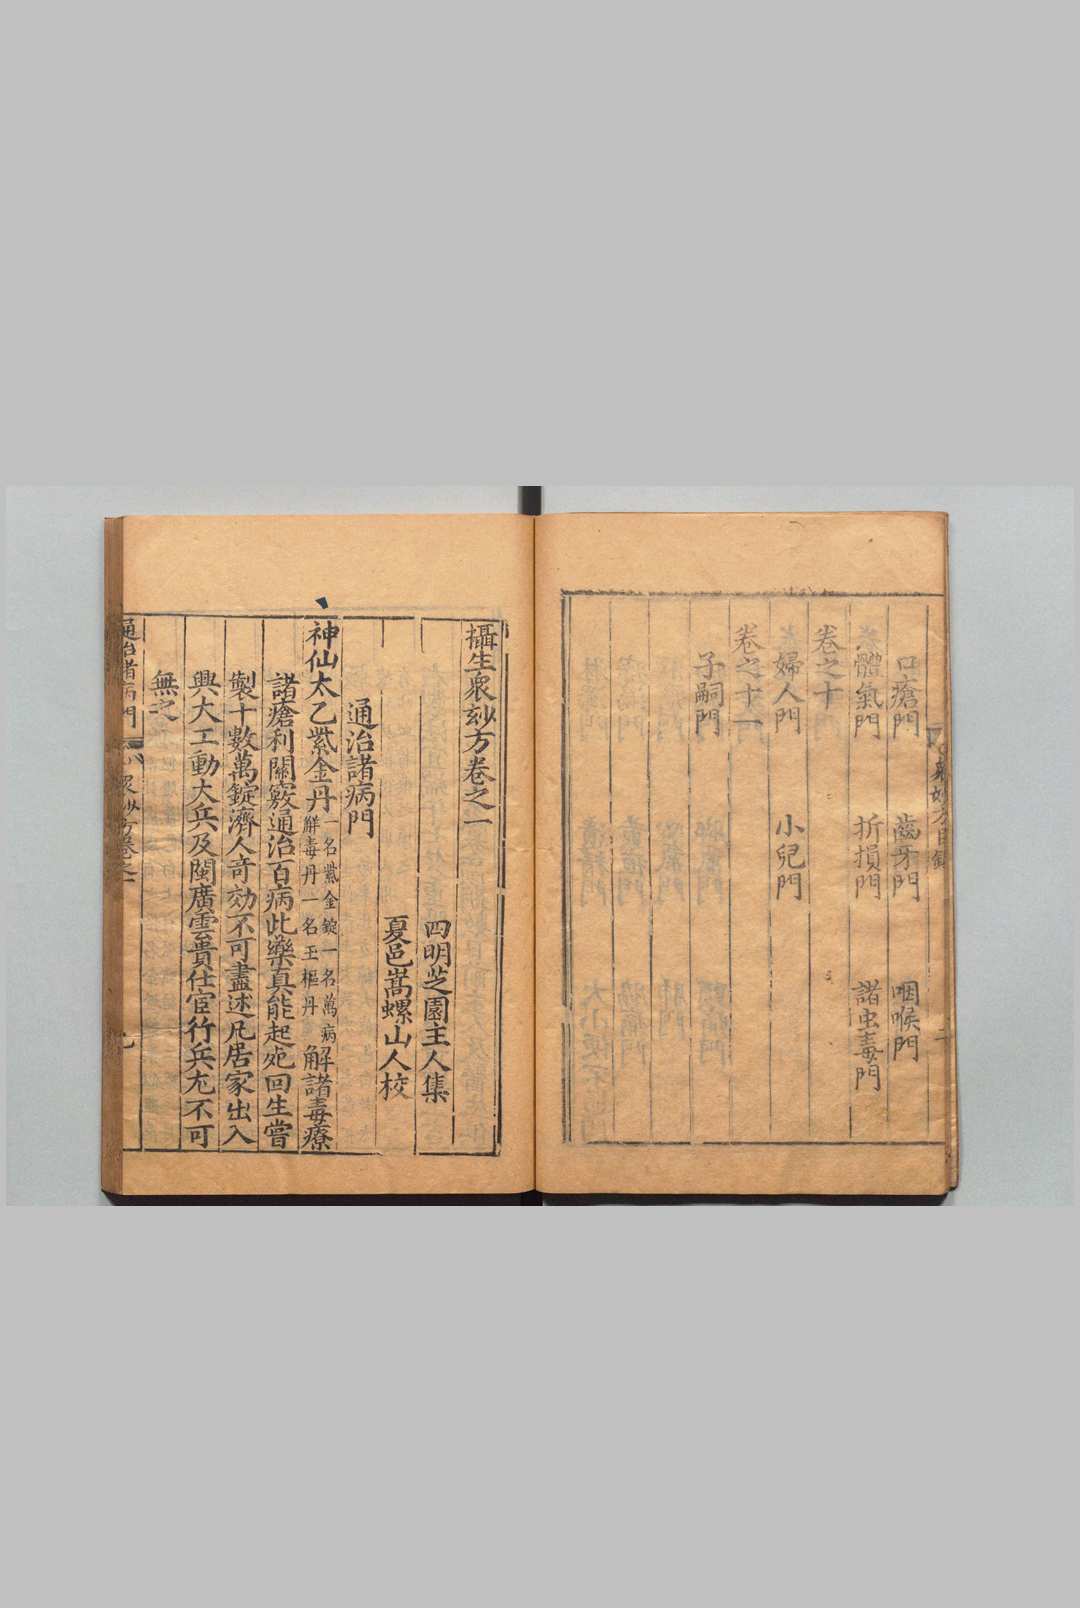 口瘡門 齒牙門 咽喉門
體氣門 折損門 諸虫毒門
卷之十
婦人門 小兒門
卷之十一
子嗣門
攝生衆玅方卷之一
四明芝園主人集
夏邑嵩螺山人校
通治諸病門
神仙太乙紫金丹一名紫金錠一名萬病
解毒丹一名玉樞丹解諸毒療
諸瘡利關竅通治百病此藥真能起死回生嘗
製十數萬錠濟人奇効不可盡述凡居家出入
興大工動大兵及閩廣雲貴仕宦行兵尤不可
無之
通治諸病門 衆玅方卷之一